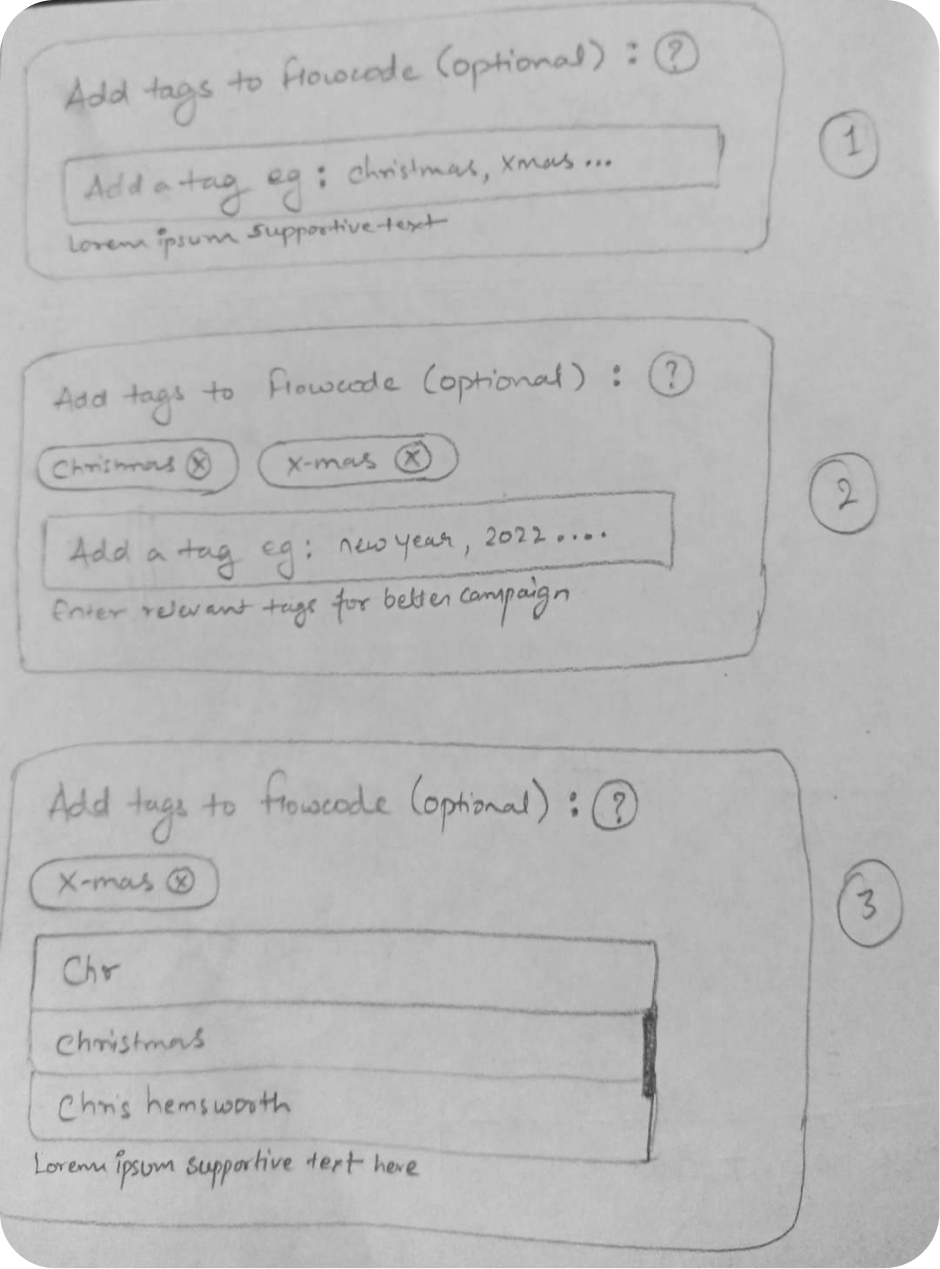 Add tags to flowcode (optional) : ?
Add a tag eg : christmas, xmas...
1
Lorem ipsum supportive text
Add tags to flowcode (optional) : ?
Christmas x
X-mas x
2
Add a tag eg : new year, 2022....
Enter relevant tags for better campaign
Add tags to flowcode (optional) : ?
X-mas x
3
Chr
Christmas
Chris hemsworth
Lorem ipsum supportive text here